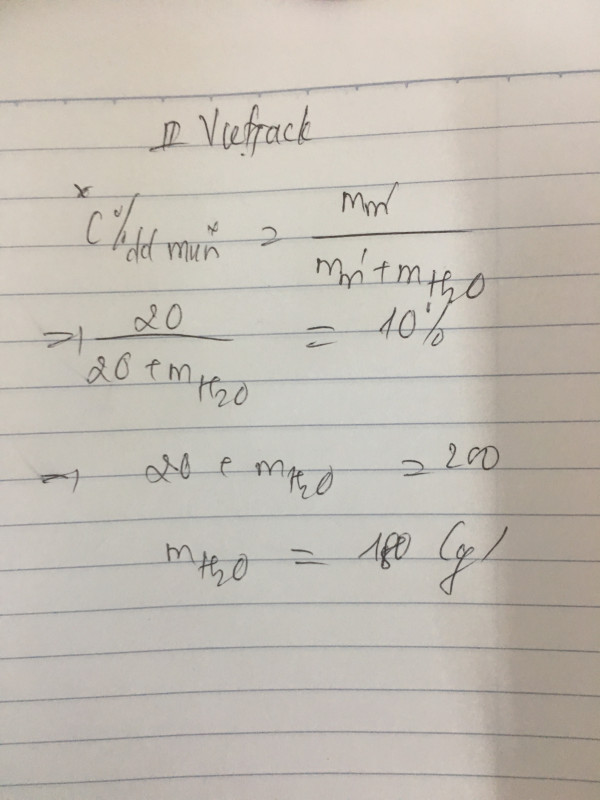 II Vietjack
* C%dd muối = mm'
mm' + mH2O
=> 20 = 10%
20 + mH2O
=> 20 + mH2O = 200
mH2O = 180 (g)